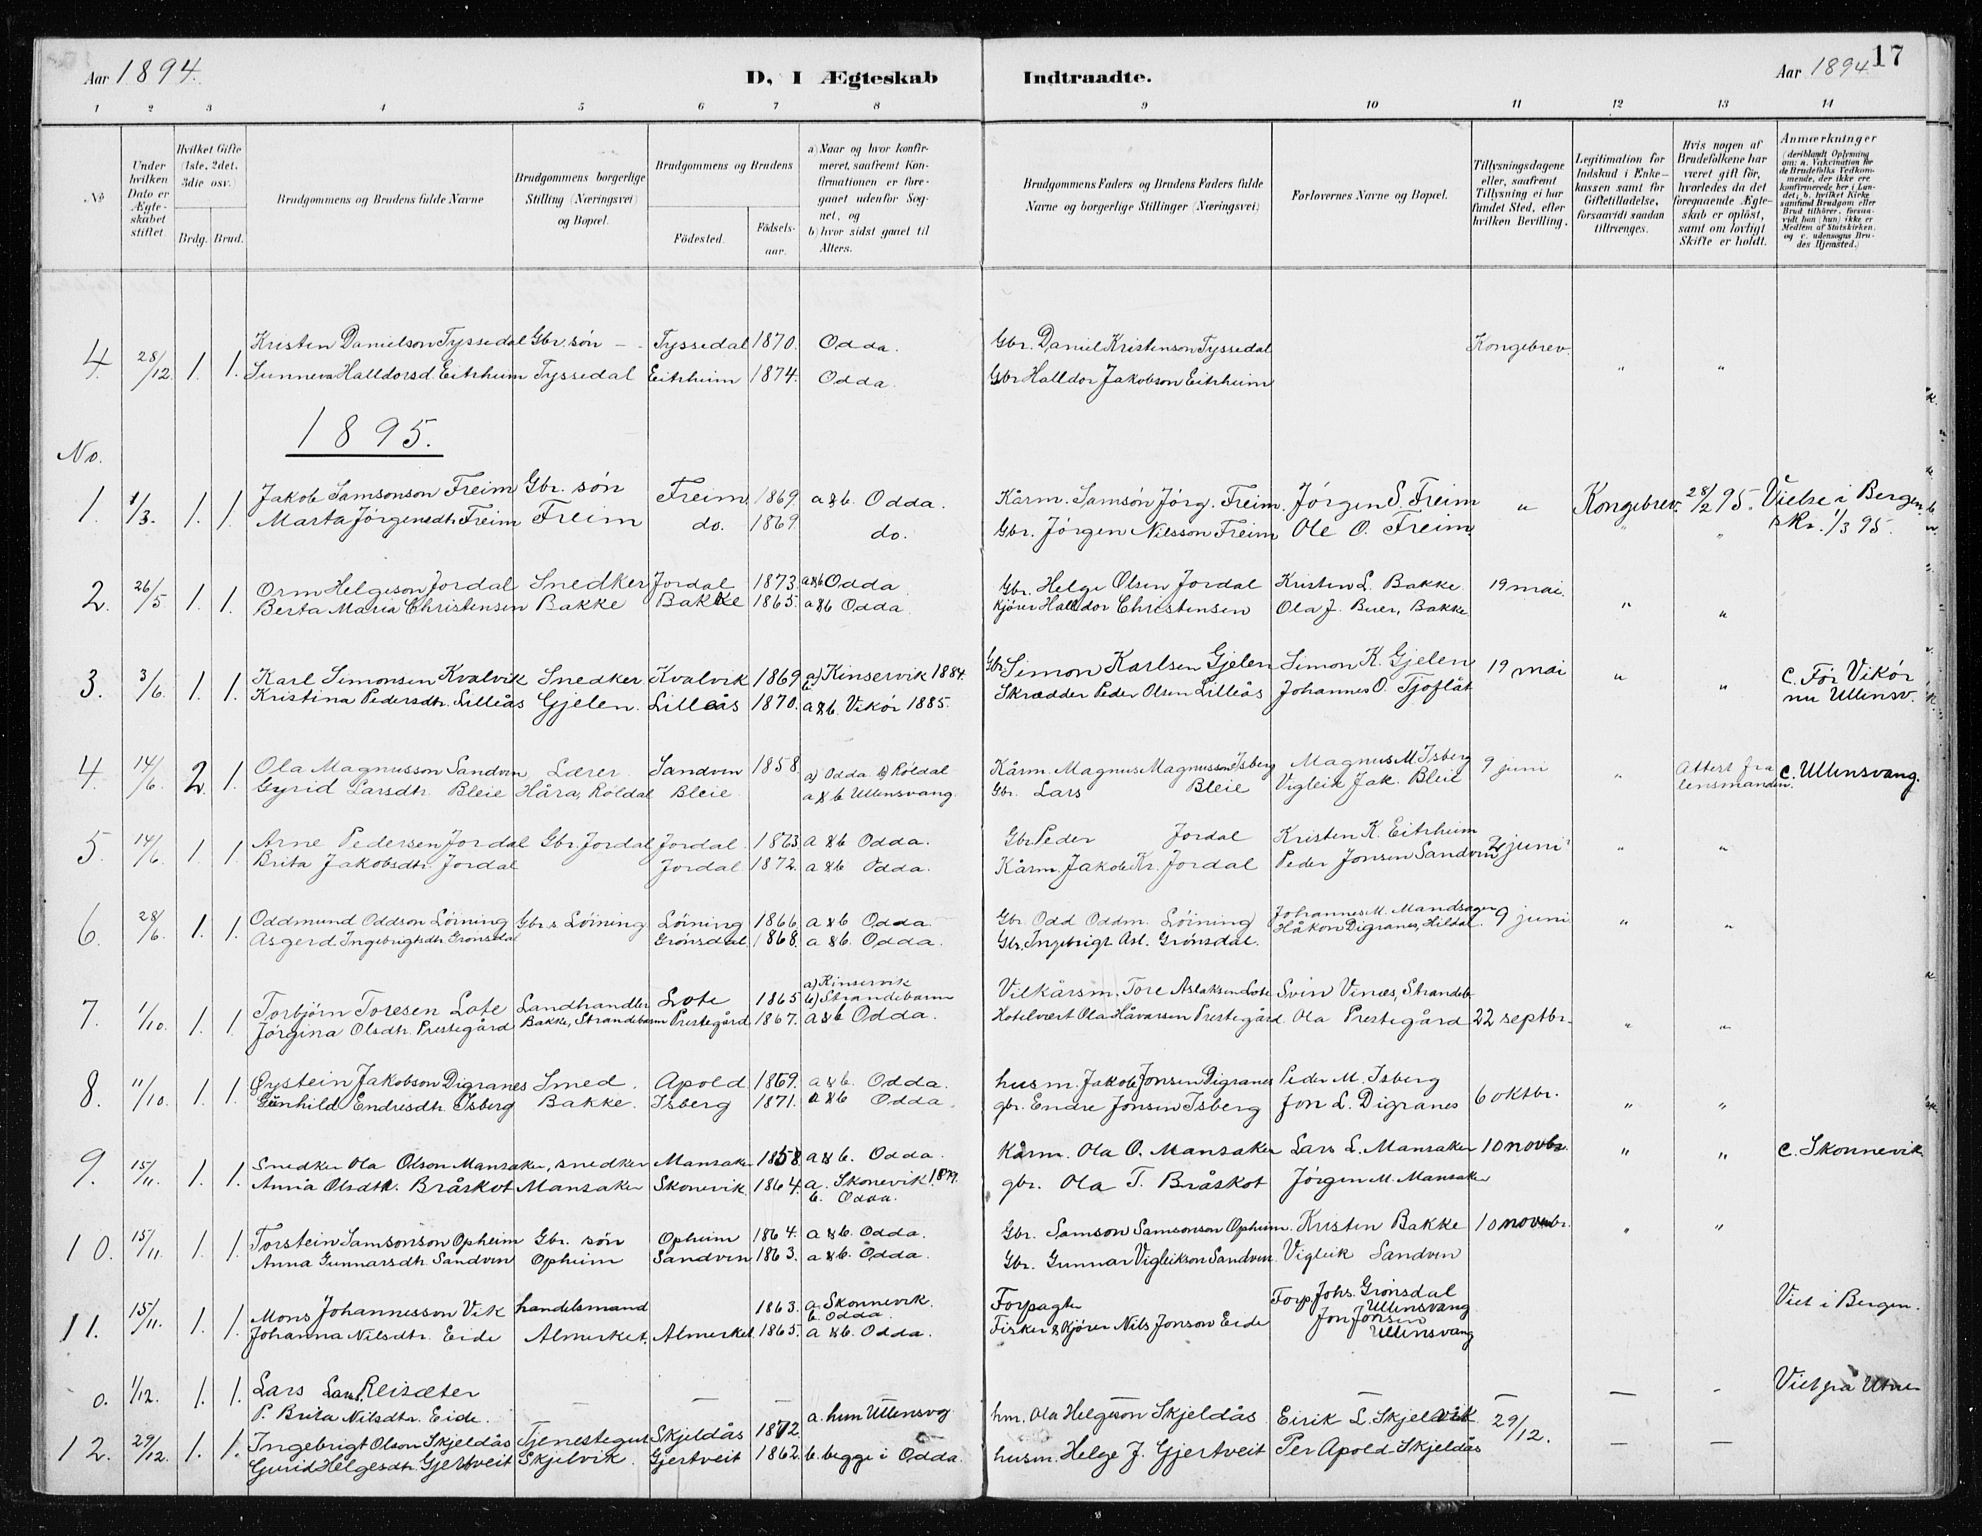 Aar 1894. D, I Ægteskab Indtraadte. Aar 1894 17
1 2 3 4 5 6 7 8 9 10 11 12 13 14
No
Under hvilken Dato er Ægteskabet stiftet.
Hvilket Gifte (1ste, 2det, 3die osv.)
Brdg. Brud.
Brudgommens og Brudens fulde Navne
Brudgommens borgerlige Stilling (Næringsvei) og Bopæl.
Brudgommens og Brudens
Fødested. Fødselsaar.
a) Naar og hvor konfirmeret, saafremt Konfirmationen er foregaaet udenfor Sognet, og
b) hvor sidst gaaet til Alters.
Brudgommens Faders og Brudens Faders fulde Navne og borgerlige Stillinger (Næringsvei)
Forlovernes Navne og Bopæl.
Tillysningsdagene eller, saafremt Tillysning ei har fundet Sted, efter hvilken Bevilling.
Legitimation for Indskud i Enkekassen samt for Giftetilladelse, forsaavidt saadan tiltrænges.
Hvis nogen af Brudefolkene har været gift før, hvorledes da det foregaaende Ægteskab er opløst, samt om lovligt Skifte er holdt.
Anmærkninger (deriblandt Oplysning om: a. Vakcination for de Brudefolks Vedkommende, der ikke ere konfirmerede her i Landet, b. hvilket Kirkesamfund Brudgom eller Brud tilhører, forsaavidt han (hun) ikke er Medlem af Statskirken, og c. udensogns Brudes Hjemsted.)
4. 28/12 1. 1. Kristen Danielson Tyssedal Gbr. søn — Tyssedal 1870. Odda. Gbr. Daniel Kristenson Tyssedal Kongebrev.
Sunneva Halldorsd. Eitrheim Tyssedal Eitrheim 1874. Odda. Gbr Halldor Jakobson Eitrheim " "
1895.
No.
1. 1/3. 1. 1. Jakob Samsonson Freim Gbr. søn Freim 1869 a & b. Odda. Kårm. Samsón Jörg. Freim. Jórgen S. Freim " Kongebrev. 28/2 95. Vielse i Bergen
Marta Jörgensdtr. Freim Freim do. 1869. do. Gbr. Jórgen Nilsson Freim Ole O. Freim " " 1/3 95.
2. 26/5 1. 1. Orm Helgeson Jordal Snedker Jordal 1873. a & b Odda Gbr. Helge Olsen Jordal Kristen L. Bakke 19 mai.
Berta Maria Christensen Bakke Bakke 1865. a & b Odda Kjörer Halldor Christensen Ola J. Buer, Bakke " "
3. 3/6. 1. 1. Karl Simonsen Kvalvik Snedker Kvalvik 1869 a) Kinservik 1884. Gbr. Simon Karlsen Gjelen Simon K. Gjelen 19 mai " " C. För Vikör
Kristina Pedersdtr. Lilleås Gjelen. Lilleås 1870. a & b. Vikór 1885. Skrædder Peder Olsen Lilleås Johannes O. Tjoflåt nu Ullensv.
4. 14/6. 2. 1. Ola Magnusson Sandven Lærer Sandven 1858 a) Odda b) Röldal Kårm. Magnus Magnusson Isberg Magnus M. Isberg 9 juni " Attest fra lensmanden. C. Ullensvang.
Gyrid Larsdtr. Bleie Håra, Róldal Bleie. a & b Ullensvang. Gbr. Lars Bleie Vigleik Jak. Bleie
5. 14/6. 1. 1. Arne Pedersen Jordal Gbr. Jordal Jordal. 1863. a & b Odda. Gbr Peder Jordal Kristen K. Eitrheim 2 juni " "
Brita Jakobsdtr. Jordal Jordal 1872. a & b Odda. Kårm. Jakob Kr. Jordal Peder Jonsen Sandven
6. 28/6. 1. 1. Oddmund Oddson Löining Gbr.s Löining Löning 1866. a & b Odda. Gbr. Odd Oddm. Löining Johannes M. Mandsager 9 juni " "
Asgerd Ingebrigtsdtr. Grönsdal Grönsdal 1868. a & b. Odda. Gbr. Ingebrigt Asl. Grónsdal. Håkon Digranes, Hildal.
7. 1/10. 1. 1. Torbjörn Toresen Lote Landhandler Lote 1865 a) Kinservik b) Strandebarm Vilkårsm. Tore Aslaksen Lote Svin Vinæs, Strandeb.
Jórgina Olsdtr. Prestegård Bakke, Strandebarm Prestegård 1867. a & b Odda. Hotelvært Ola Håvarsen Prestegård Ola Prestegård 22 septbr. " "
8. 11/10. 1. 1. Øystein Jakobson Digranes Smed. Apold 1869. a & b. Odda. husm. Jakob Jonsen Digranes Peder M. Isberg 6 oktbr. " "
Gunhild Endresdtr. Isberg Bakke. Isberg 1871. a & b Odda. gbr. Endre Jonsen Isberg Jon L. Digranes
9. 15/11. 1. 1. Snedker Ola Olson Mansaker, snedker Mansaker 1858 a & b. Odda. Kårm. Ola O. Mansaker Lars L. Mansaker 10 novbr. " " C. Skonnevik
Anna Olsdtr. Bråskot Mansaker Skonevik 1864. a. Skonevik 1879. b. Odda. gbr. Ola T. Bråskot Jórgen M. Mansaker
10. 15/11. 1. 1. Torstein Samsonson Opheim Gbr. søn Opheim 1864. a & b. Odda. Gbr. Samson Samsonson Opheim. Kristen Bakke 10 novbr. " "
Anna Gunnarsdtr. Sandven Opheim Sandven 1863. a & b. Odda. Gbr. Gunnar Vigleikson Sandven. Vigleik Sandven
11. 15/11. 1. 1. Mons Johannesson Vik handelsmand 1863. a. Skonnevik. b. Odda. Forpagter Forp. Johs. Grönsdal Ullensvang Viet i Bergen.
Johanna Nilsdtr. Eide Almerket. Almerket 1865. a & b. Odda. Fisker & Kjörer Nils Jonson Eide Jon Jonsen Ullensvang
0. 1/12. 1. 1. Lars Lars. Reisæter — — — — — — — Viet fra Utne
P. Brita Nilsdtr. Eide.
12. 29/12. 1. 1. Ingebrigt Olson Skjeldås Tjenestegut Skjeldås 1872 a. hun Ullensvg hm. Ola Helgeson Skjeldås Eirik L. Skjelvik 29/12. — —
Gurid Helgesdtr. Gjertveit Skjelvik. Gjertveit 1862. b. begge i Odda. husm. Helge J. Gjertveit Per Apold Skjeldås